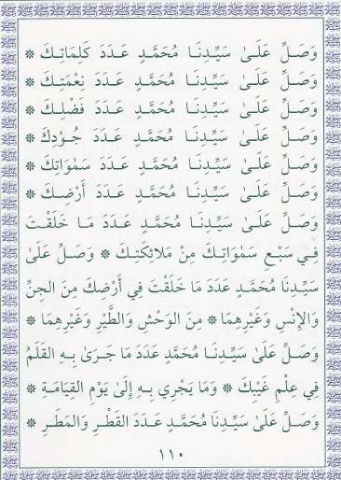 وَصَلِّ عَلَىٰ سَيِّدِنَا مُحَمَّدٍ عَدَدَ كَلِمَاتِكَ ❊
وَصَلِّ عَلَىٰ سَيِّدِنَا مُحَمَّدٍ عَدَدَ نِعْمَتِكَ ❊
وَصَلِّ عَلَىٰ سَيِّدِنَا مُحَمَّدٍ عَدَدَ فَضْلِكَ ❊
وَصَلِّ عَلَىٰ سَيِّدِنَا مُحَمَّدٍ عَدَدَ جُودِكَ ❊
وَصَلِّ عَلَىٰ سَيِّدِنَا مُحَمَّدٍ عَدَدَ سَمٰوَاتِكَ ❊
وَصَلِّ عَلَىٰ سَيِّدِنَا مُحَمَّدٍ عَدَدَ أَرْضِكَ ❊
وَصَلِّ عَلَىٰ سَيِّدِنَا مُحَمَّدٍ عَدَدَ مَا خَلَقْتَ
فِي سَبْعِ سَمٰوَاتِكَ مِنْ مَلَائِكَتِكَ ❊ وَصَلِّ عَلَىٰ
سَيِّدِنَا مُحَمَّدٍ عَدَدَ مَا خَلَقْتَ فِي أَرْضِكَ مِنَ الجِنِّ
وَالإِنْسِ وَغَيْرِهِمَا ❊ مِنَ الوَحْشِ وَالطَّيْرِ وَغَيْرِهِمَا ❊
وَصَلِّ عَلَىٰ سَيِّدِنَا مُحَمَّدٍ عَدَدَ مَا جَرَىٰ بِهِ القَلَمُ
فِي عِلْمِ غَيْبِكَ ❊ وَمَا يَجْرِي بِهِ إِلَىٰ يَوْمِ القِيَامَةِ ❊
وَصَلِّ عَلَىٰ سَيِّدِنَا مُحَمَّدٍ عَدَدَ القَطْرِ وَالمَطَرِ
١١٠